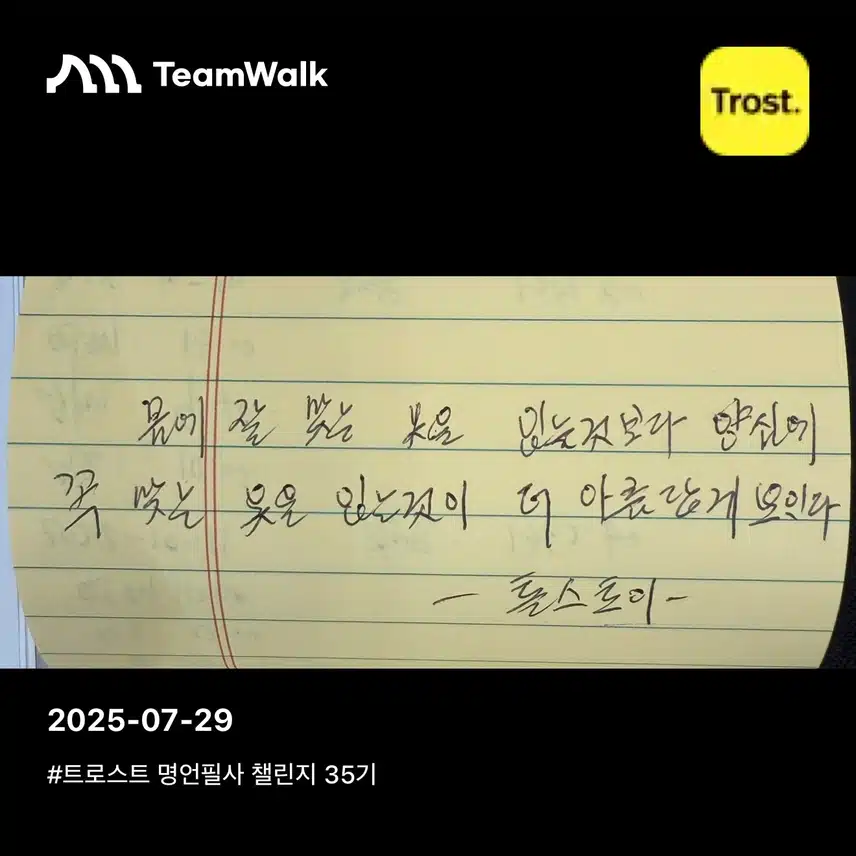 TeamWalk
Trost.
몸에 잘 맞는 옷을 입는것보다 양심에
꼭 맞는 옷을 입는것이 더 아름답게 보인다
- 톨스토이 -
2025-07-29
#트로스트 명언필사 챌린지 35기